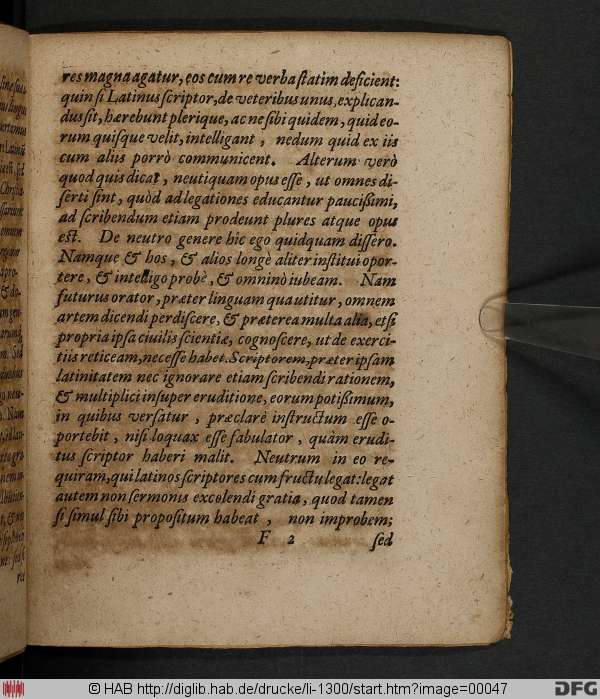 res magna agatur, eos cum re verba ſtatim deficient:
quin ſi Latinus ſcriptor, de veteribus unus, explican-
dus ſit, hærebunt plerique, ac ne ſibi quidem, quid eo-
rum quiſque velit, intelligant, nedum quid ex iis
cum aliis porrò communicent. Alterum verò
quod quis dicat, neutiquam opus eſſe, ut omnes di-
ſerti ſint, quòd ad legationes educantur pauciſſimi,
ad ſcribendum etiam prodeunt plures atque opus
est. De neutro genere hîc ego quidquam diſſero.
Namque & hos, & alios longè aliter inſtitui opor-
tere, & intelligo probè, & omninò iubeam. Nam
futurus orator, præter linguam qua utitur, omnem
artem dicendi perdiſcere, & præterea multa alia, etſi
propria ipſa ciuilis ſcientiæ, cognoſcere, ut de exerci-
tiis reticeam, neceſſe habet. Scriptorem, præter ipſam
latinitatem nec ignorare etiam ſcribendi rationem,
& multiplici inſuper eruditione, eorum potiſſimum,
in quibus verſatur, præclarè inſtructum eſſe o-
portebit, niſi loquax eſſe fabulator, quàm erudi-
tus ſcriptor haberi malit. Neutrum in eo re-
quiram, qui latinos ſcriptores cum fructu legat: legat
autem non ſermonis excolendi gratia, quod tamen
ſi ſimul ſibi propoſitum habeat, non improbem;
F 2 ſed
© HAB http://diglib.hab.de/drucke/li-1300/start.htm?image=00047
DFG